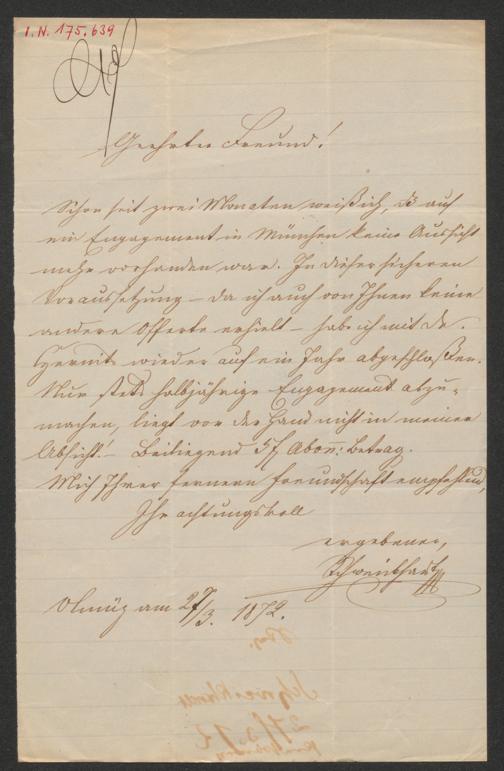 I.N. 175.639
Geehrter Freund!
Schon seit zwei Monaten weiß ich, daß auf
ein Engagement in München keine Aussicht
mehr vorhanden war. In dieser sicheren
Voraussetzung – da ich auch von Ihnen keine
andere Offerte erhielt – habe ich mit de
Czernitz wieder auf ein Jahr abgeschloßen.
Nur stets halbjährige Engagement abzu-
machen, liegt vor der Hand nicht in meiner
Absicht! – Beiliegend 5 f Abon: Betrag.
Mich Ihrer fernern Freundschaft empfehlend,
Ihr achtungsvoll
ergebener,
Olmüz am 27/3. 1872.